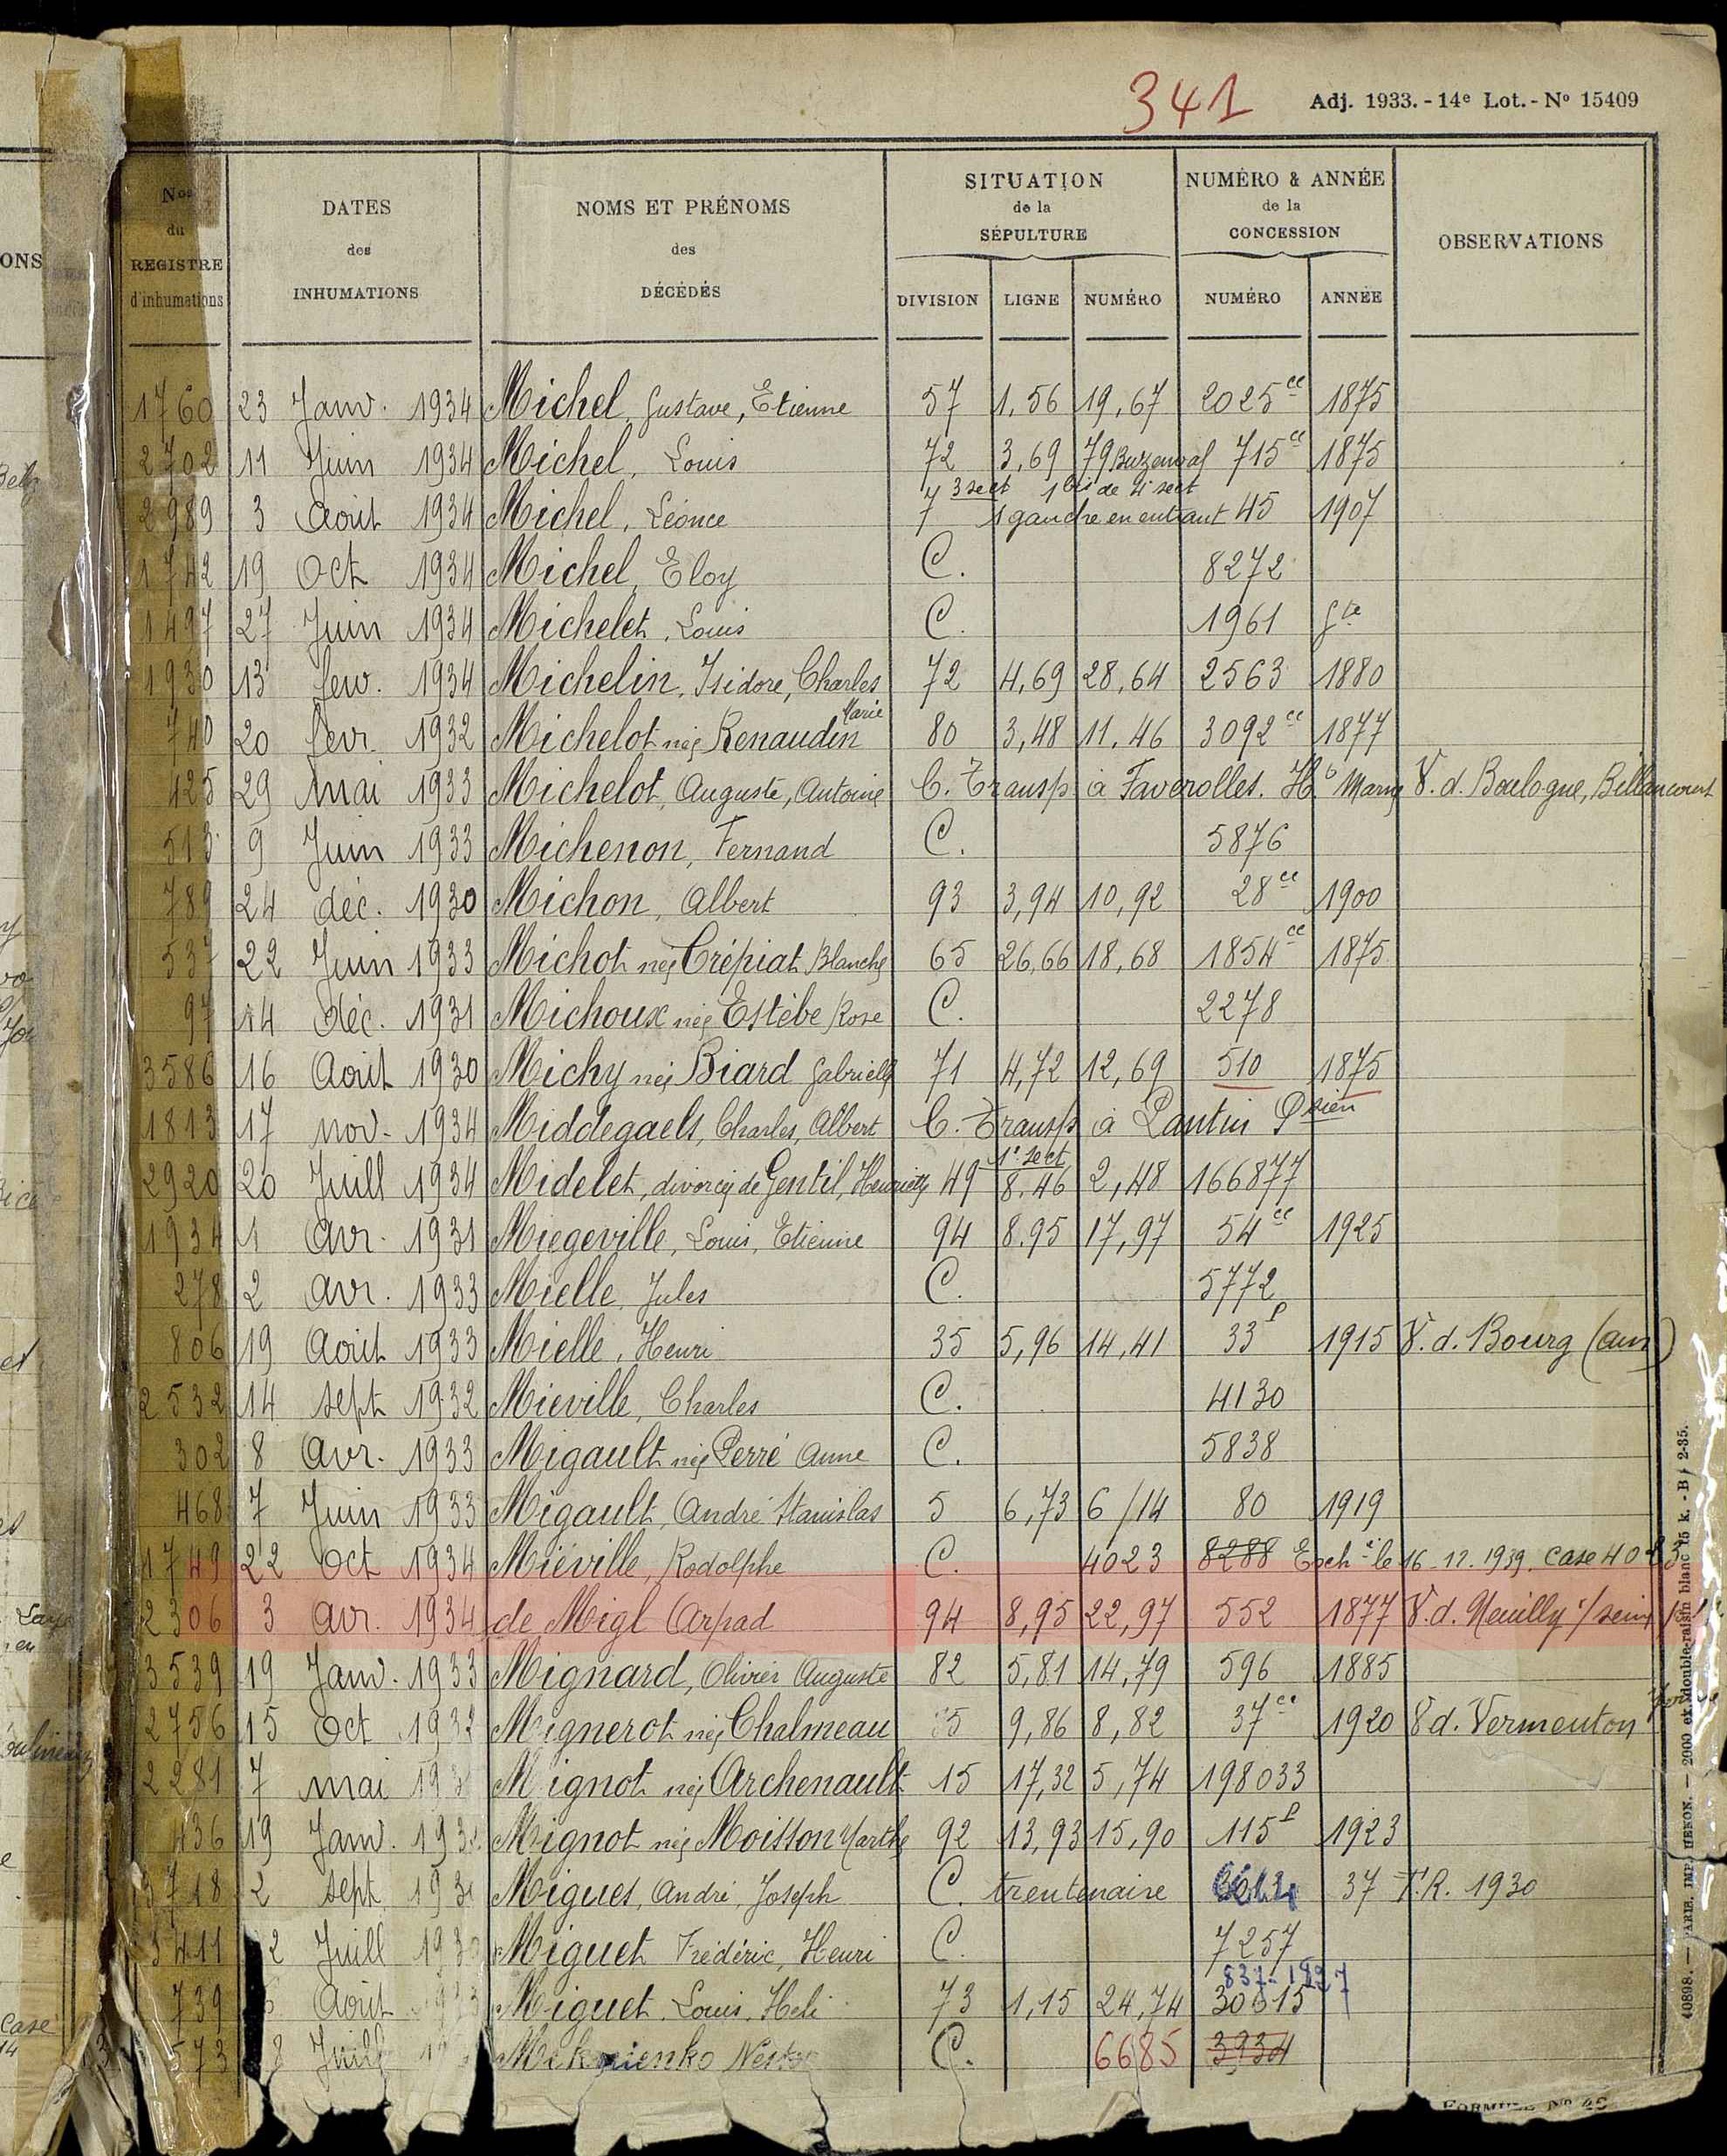 341
Adj. 1933. - 14e Lot. - No 15409
Nos du REGISTRE d'inhumations
DATES des INHUMATIONS
NOMS ET PRÉNOMS des DÉCÉDÉS
SITUATION de la SÉPULTURE
DIVISION LIGNE NUMÉRO
NUMÉRO & ANNÉE de la CONCESSION
NUMÉRO ANNÉE
OBSERVATIONS
ONS
1760 23 Janv. 1934 Michel, Gustave, Etienne 57 1,56 19,67 2025 ce 1875
2702 11 Juin 1934 Michel, Louis 72 3,69 79 Buzenval 715 ce 1875
3 sect 1 bis de 4e sect
2989 3 Août 1934 Michel, Léonce 7 1 gauche en entrant 45 1907
1742 19 Oct 1934 Michel, Eloy C. 8272
1497 27 Juin 1934 Michelet, Louis C. 1961 gte
1930 13 fev. 1934 Michelin, Isidore, Charles 72 4,69 28,64 2563 1880
740 20 fevr. 1932 Michelot née Renaudin Marie 80 3,48 11.46 3092 ce 1877
425 29 Mai 1933 Michelot, Auguste, Antoine C. Transp à Faverolles. Hte Marne V. d. Boulogne, Billancourt
513 9 Juin 1933 Michenon, Fernand C. 5876
789 24 déc. 1930 Michon, Albert 93 3,94 10,92 28 ce 1900
537 22 Juin 1933 Michot née Crépiat Blanche 65 26,66 18,68 1854 ce 1875
97 14 déc. 1931 Michoux née Estèbe Rose C. 2278
3586 16 Août 1930 Michy née Biard Gabrielle 71 4,72 12,69 510 1875
1813 17 nov. 1934 Middegaels, Charles, Albert C. Transp à Pantin Psien
1e sect
2920 20 Juill 1934 Midelet, divorcée de Gentil, Henriette 49 8.46 2,48 166877
1934 1 avr. 1931 Miegeville, Louis, Etienne 94 8.95 17,97 54 ce 1925
278 2 avr. 1933 Mielle, Jules C. 5772
806 19 Août 1933 Mielle, Henri 35 5,96 14,41 33 P 1915 V. d. Bourg (ain)
2532 14 sept 1932 Mieville, Charles C. 4130
302 8 avr. 1933 Migault née Perré Anne C. 5838
468 7 Juin 1933 Migault, André Stanislas 5 6,73 6/14 80 1919
1749 22 Oct 1934 Miéville, Rodolphe C. 4023 8288 Ech. le 16-12.1939. case 4023
2306 3 avr. 1934 de Migl Arpad 94 8,95 22,97 552 1877 V. d. Neuilly s/ seine
3539 19 Janv. 1933 Mignard, Olivier Auguste 82 5,81 14,79 596 1885
2756 15 Oct 1932 Mignerot née Chalmeau 85 9,86 8,82 37 ce 1920 V d. Vermenton Yonne
2281 7 mai 193 Mignot née Archenault 15 17,32 5,74 198033
436 19 Janv. 193 Mignot née Moisson Marthe 92 13,93 15,90 115 P 1923
3718 2 sept 193 Migues, André, Joseph C. trentenaire 37 T.R. 1930
3411 2 Juill 193 Miguet Frédéric, Henri C. 7257
837-1927
739 Août 1933 Miguet, Louis, Heli 73 1,15 24,74 30615
573 Juill Mikrienko Nestor C. 6685 3934
FORMULE No 43
40898. — PARIS. IMP. HENON. — 2000 et double-raisin blanc 15 k. - B / 2-35.